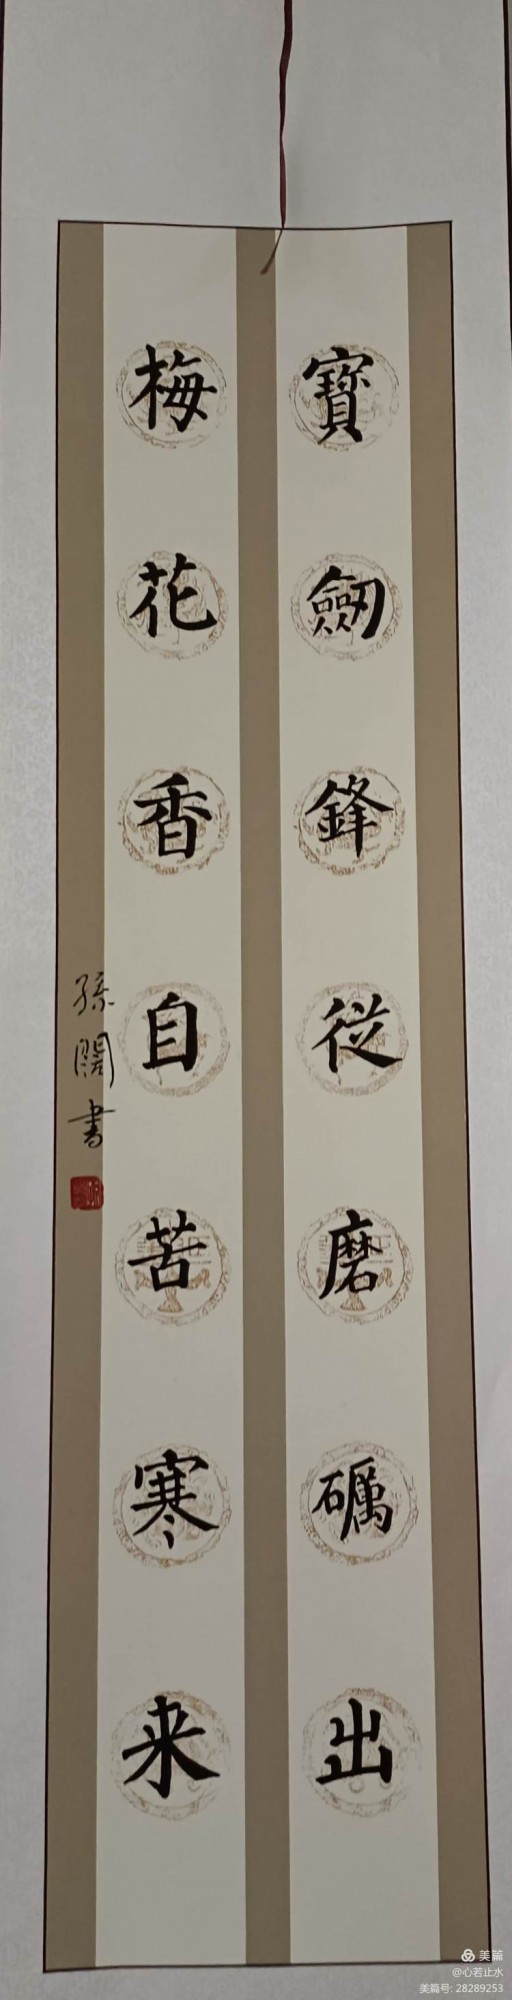 寶劒鋒從磨礪出
梅花香自苦寒来
孫闊書
美篇
@心若止水
美篇号: 28289253